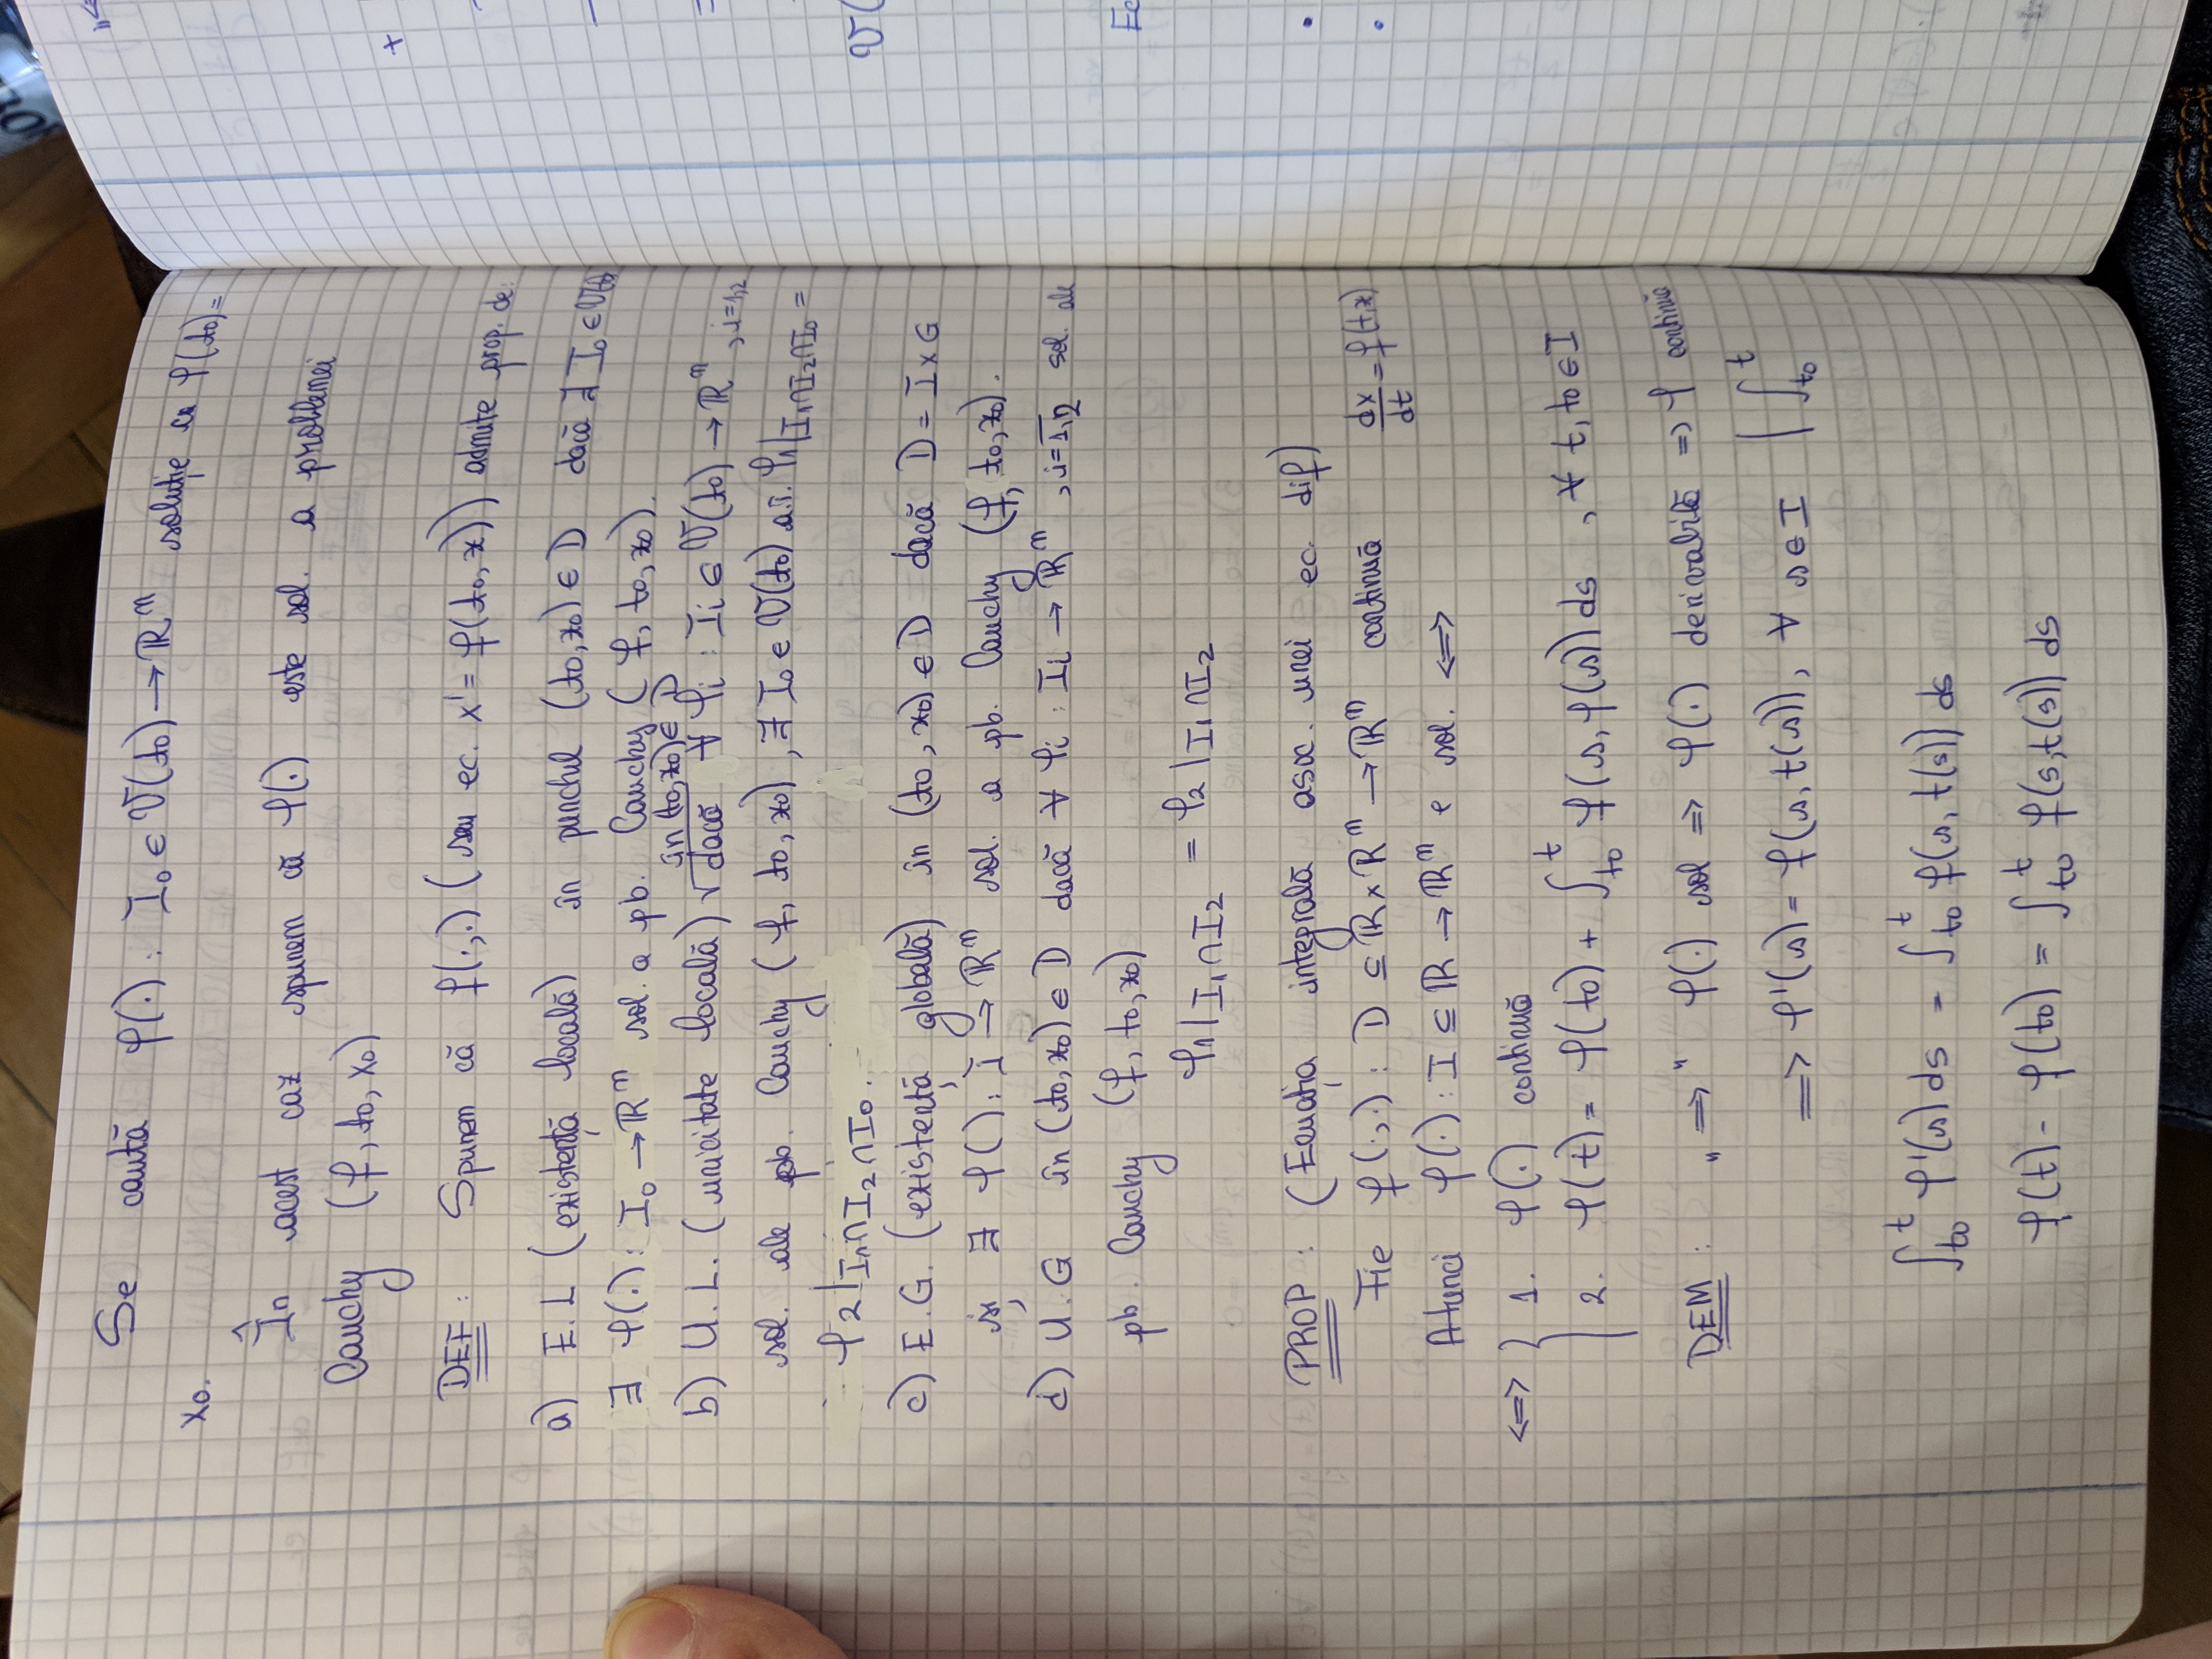 Se caută φ(·) : I₀ ∈ V(t₀) → ℝⁿ soluție cu φ(t₀) =
x₀.
În acest caz spunem că φ(·) este sol. a problemei
Cauchy (f, t₀, x₀)
DEF : Spunem că f(·,·) (sau ec. x' = f(t₀, x)) admite prop. de:
a) E.L (existență locală) în punctul (t₀, x₀) ∈ D dacă ∃ I₀ ∈ V(t₀)
∃ φ(·) : I₀ → ℝⁿ sol. a pb. Cauchy (f, t₀, x₀).
în (t₀, x₀) ∈ D
b) U.L. (unicitate locală) √ dacă ∀ φi : Ii ∈ V(t₀) → ℝⁿ, i=1,2
sol. ale pb. Cauchy (f, t₀, x₀), ∃ I₀ ∈ V(t₀) a.î. φ₁|I₁∩I₂∩I₀ =
φ₂|I₁∩I₂∩I₀.
c) E.G. (existență globală) în (t₀, x₀) ∈ D dacă D = I × G
și ∃ φ() : I → ℝⁿ sol. a pb. Cauchy (f, t₀, x₀).
d) U.G în (t₀, x₀) ∈ D dacă ∀ φi : Ii → ℝⁿ, i=1,2 sol. ale
pb. Cauchy (f, t₀, x₀)
φ₁|I₁∩I₂ = φ₂|I₁∩I₂
PROP : (Ecuația integrală asoc. unei ec. dif)
Fie f(·,·) : D ⊆ ℝ × ℝⁿ → ℝⁿ continuă dx/dt = f(t,x)
Atunci φ(·) : I ⊆ ℝ → ℝⁿ e sol. <=>
<=> { 1. φ(·) continuă
2. φ(t) = φ(t₀) + ∫_{t₀}^{t} f(s, φ(s)) ds , ∀ t, t₀ ∈ I
DEM : „=>" φ(·) sol => φ(·) derivabilă => φ continuă
=> φ'(s) = f(s, t(s)), ∀ s ∈ I | ∫_{t₀}^{t}
∫_{t₀}^{t} φ'(s) ds = ∫_{t₀}^{t} f(s, t(s)) ds
φ(t) - φ(t₀) = ∫_{t₀}^{t} f(s, t(s)) ds